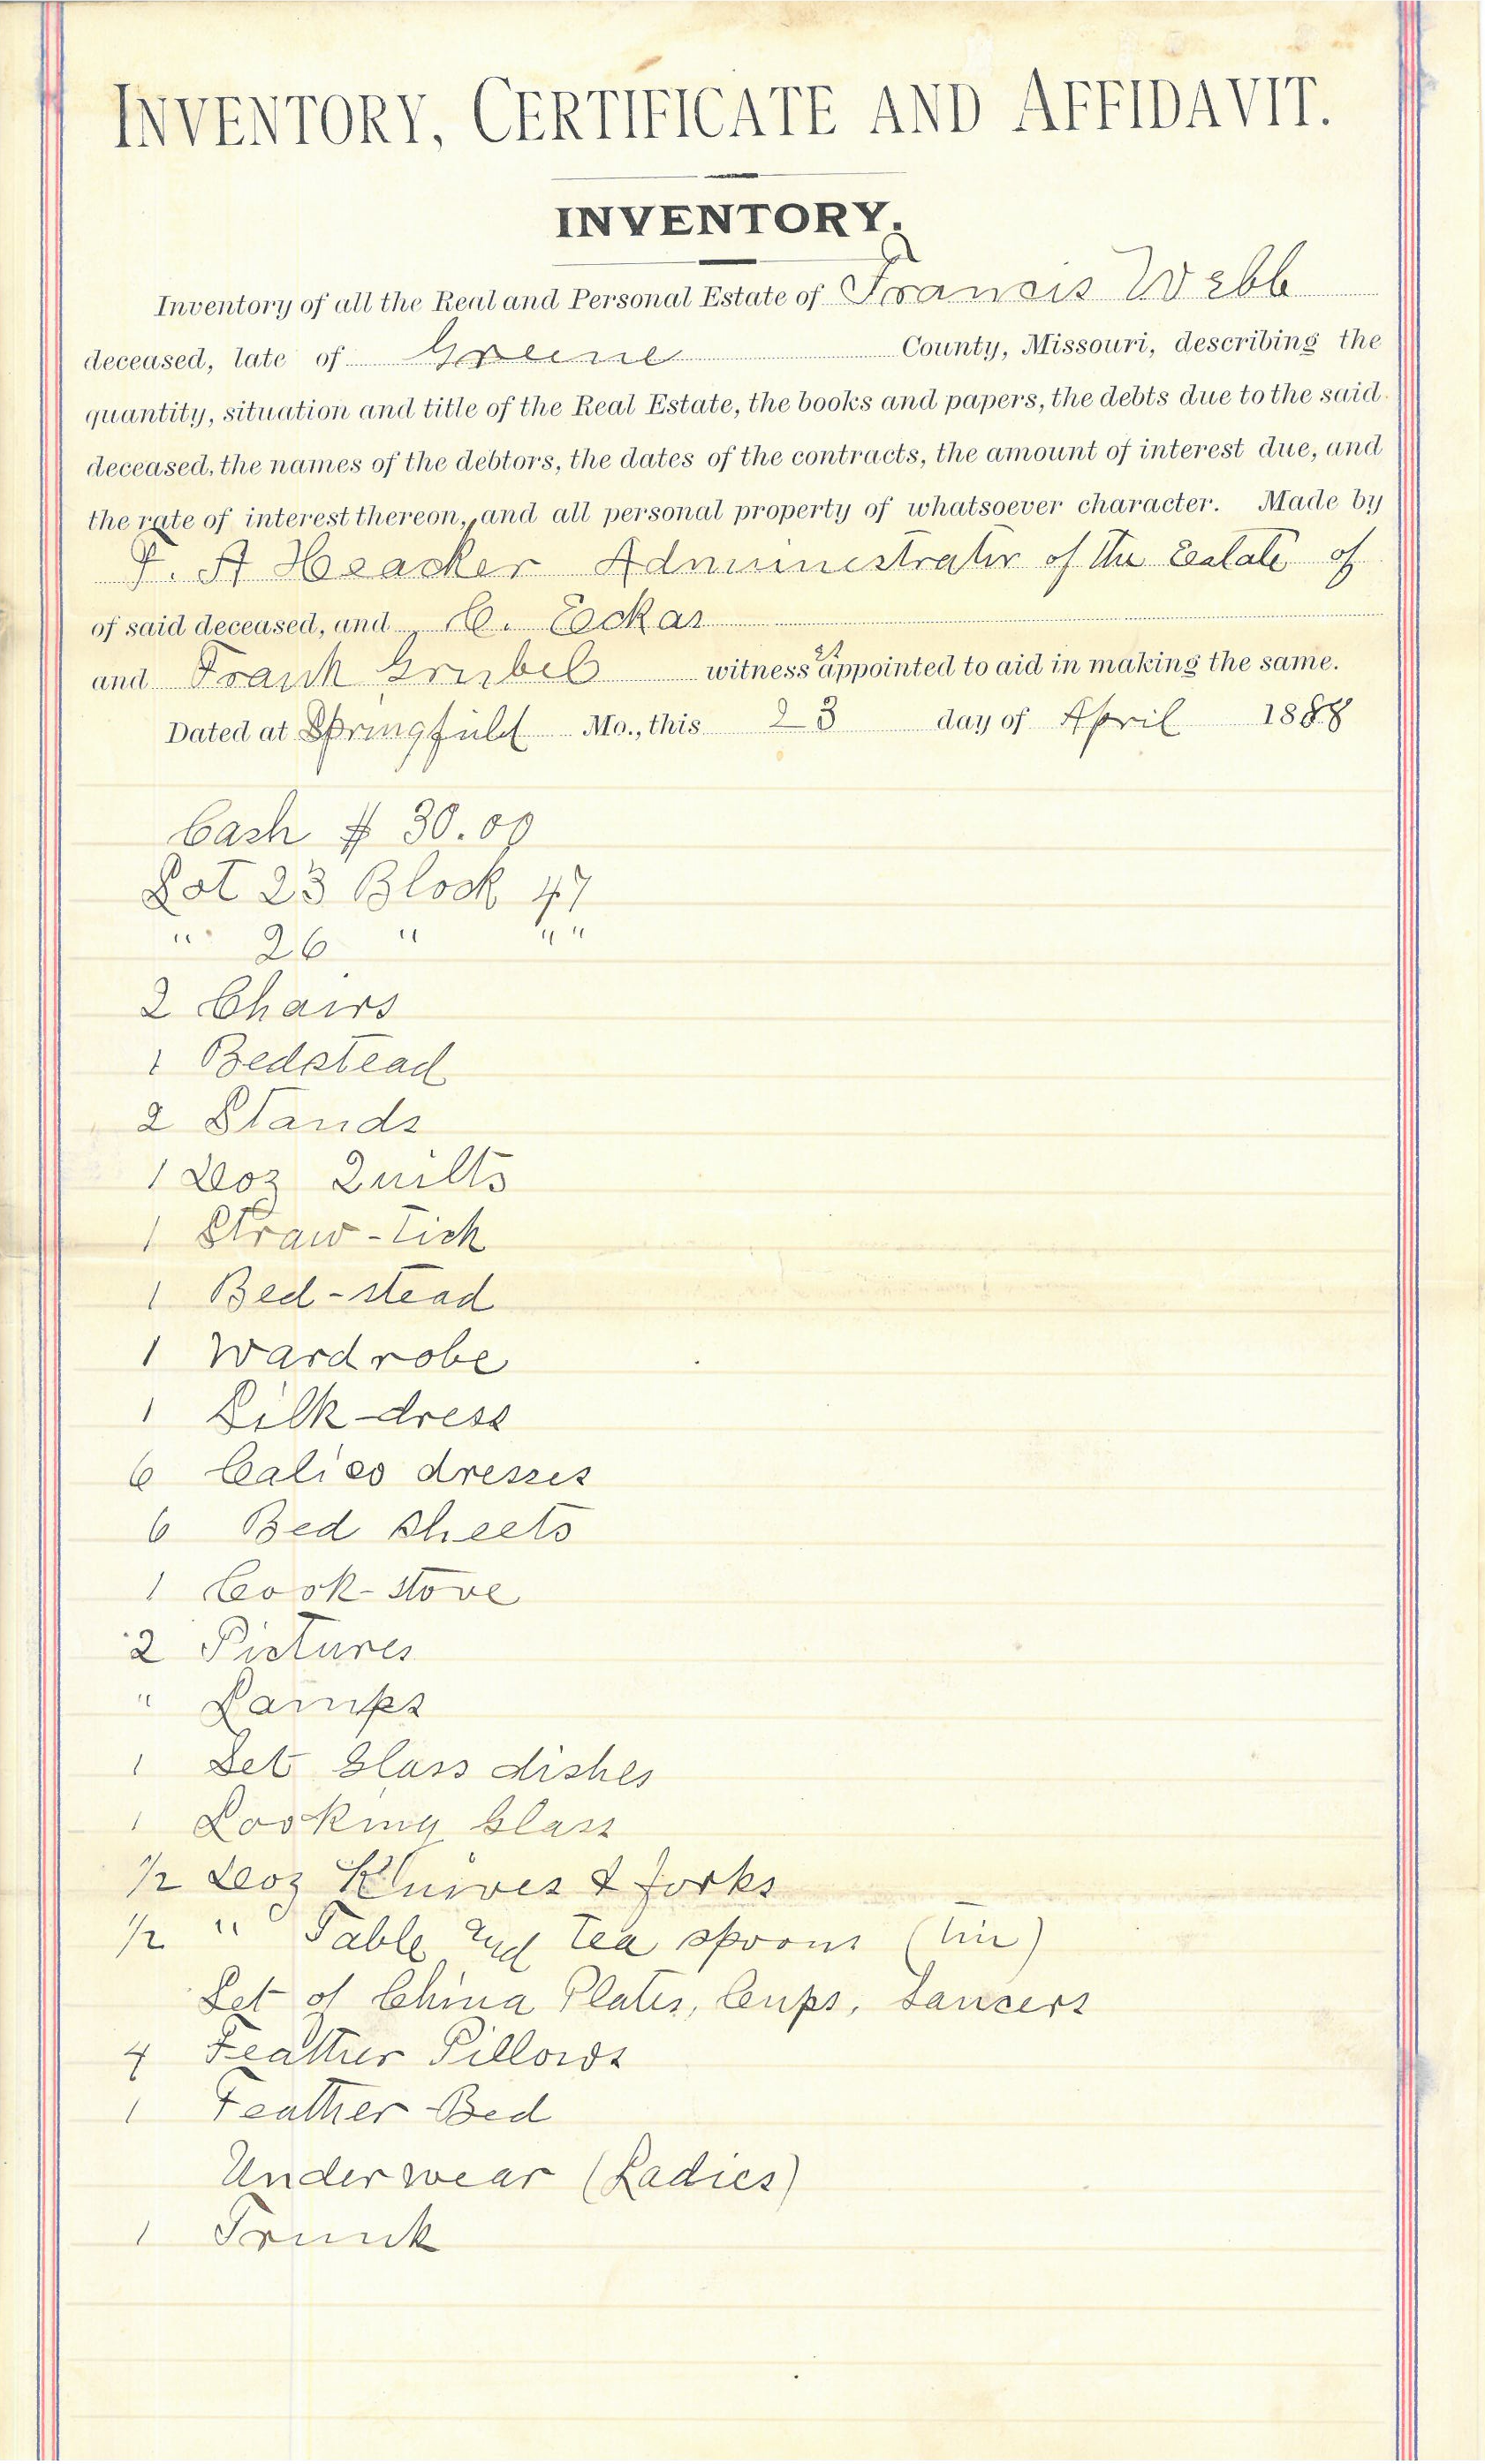 INVENTORY, CERTIFICATE AND AFFIDAVIT.
INVENTORY.
Inventory of all the Real and Personal Estate of Francis Webb
deceased, late of Greene County, Missouri, describing the
quantity, situation and title of the Real Estate, the books and papers, the debts due to the said
deceased, the names of the debtors, the dates of the contracts, the amount of interest due, and
the rate of interest thereon, and all personal property of whatsoever character. Made by
F. A Heacker Administrator of the Estate of
of said deceased, and C. Eckar
and Frank Grubel witness appointed to aid in making the same.
Dated at Springfield Mo., this 23 day of April 1888
Cash $ 30.00
Lot 23 Block 47
" 26 " " "
2 Chairs
1 Bedstead
2 Stands
1 Doz Quilts
1 Straw-Tick
1 Bed-stead
1 Wardrobe
1 Silk-dress
6 Calico dresses
6 Bed sheets
1 Cook-stove
2 Pictures
" Lamps
1 Set Glass dishes
1 Looking Glass
1/2 Doz Knives & forks
1/2 " Table and Tea spoons (Tin)
Set of China Plates, Cups, Saucers
4 Feather Pillows
1 Feather-Bed
Underwear (Ladies)
1 Trunk